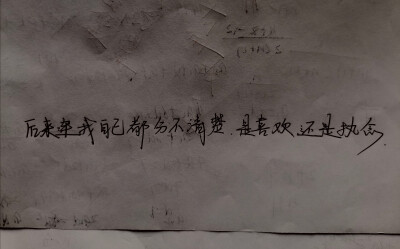 后来连我自己都分不清楚.是喜欢.还是执念.